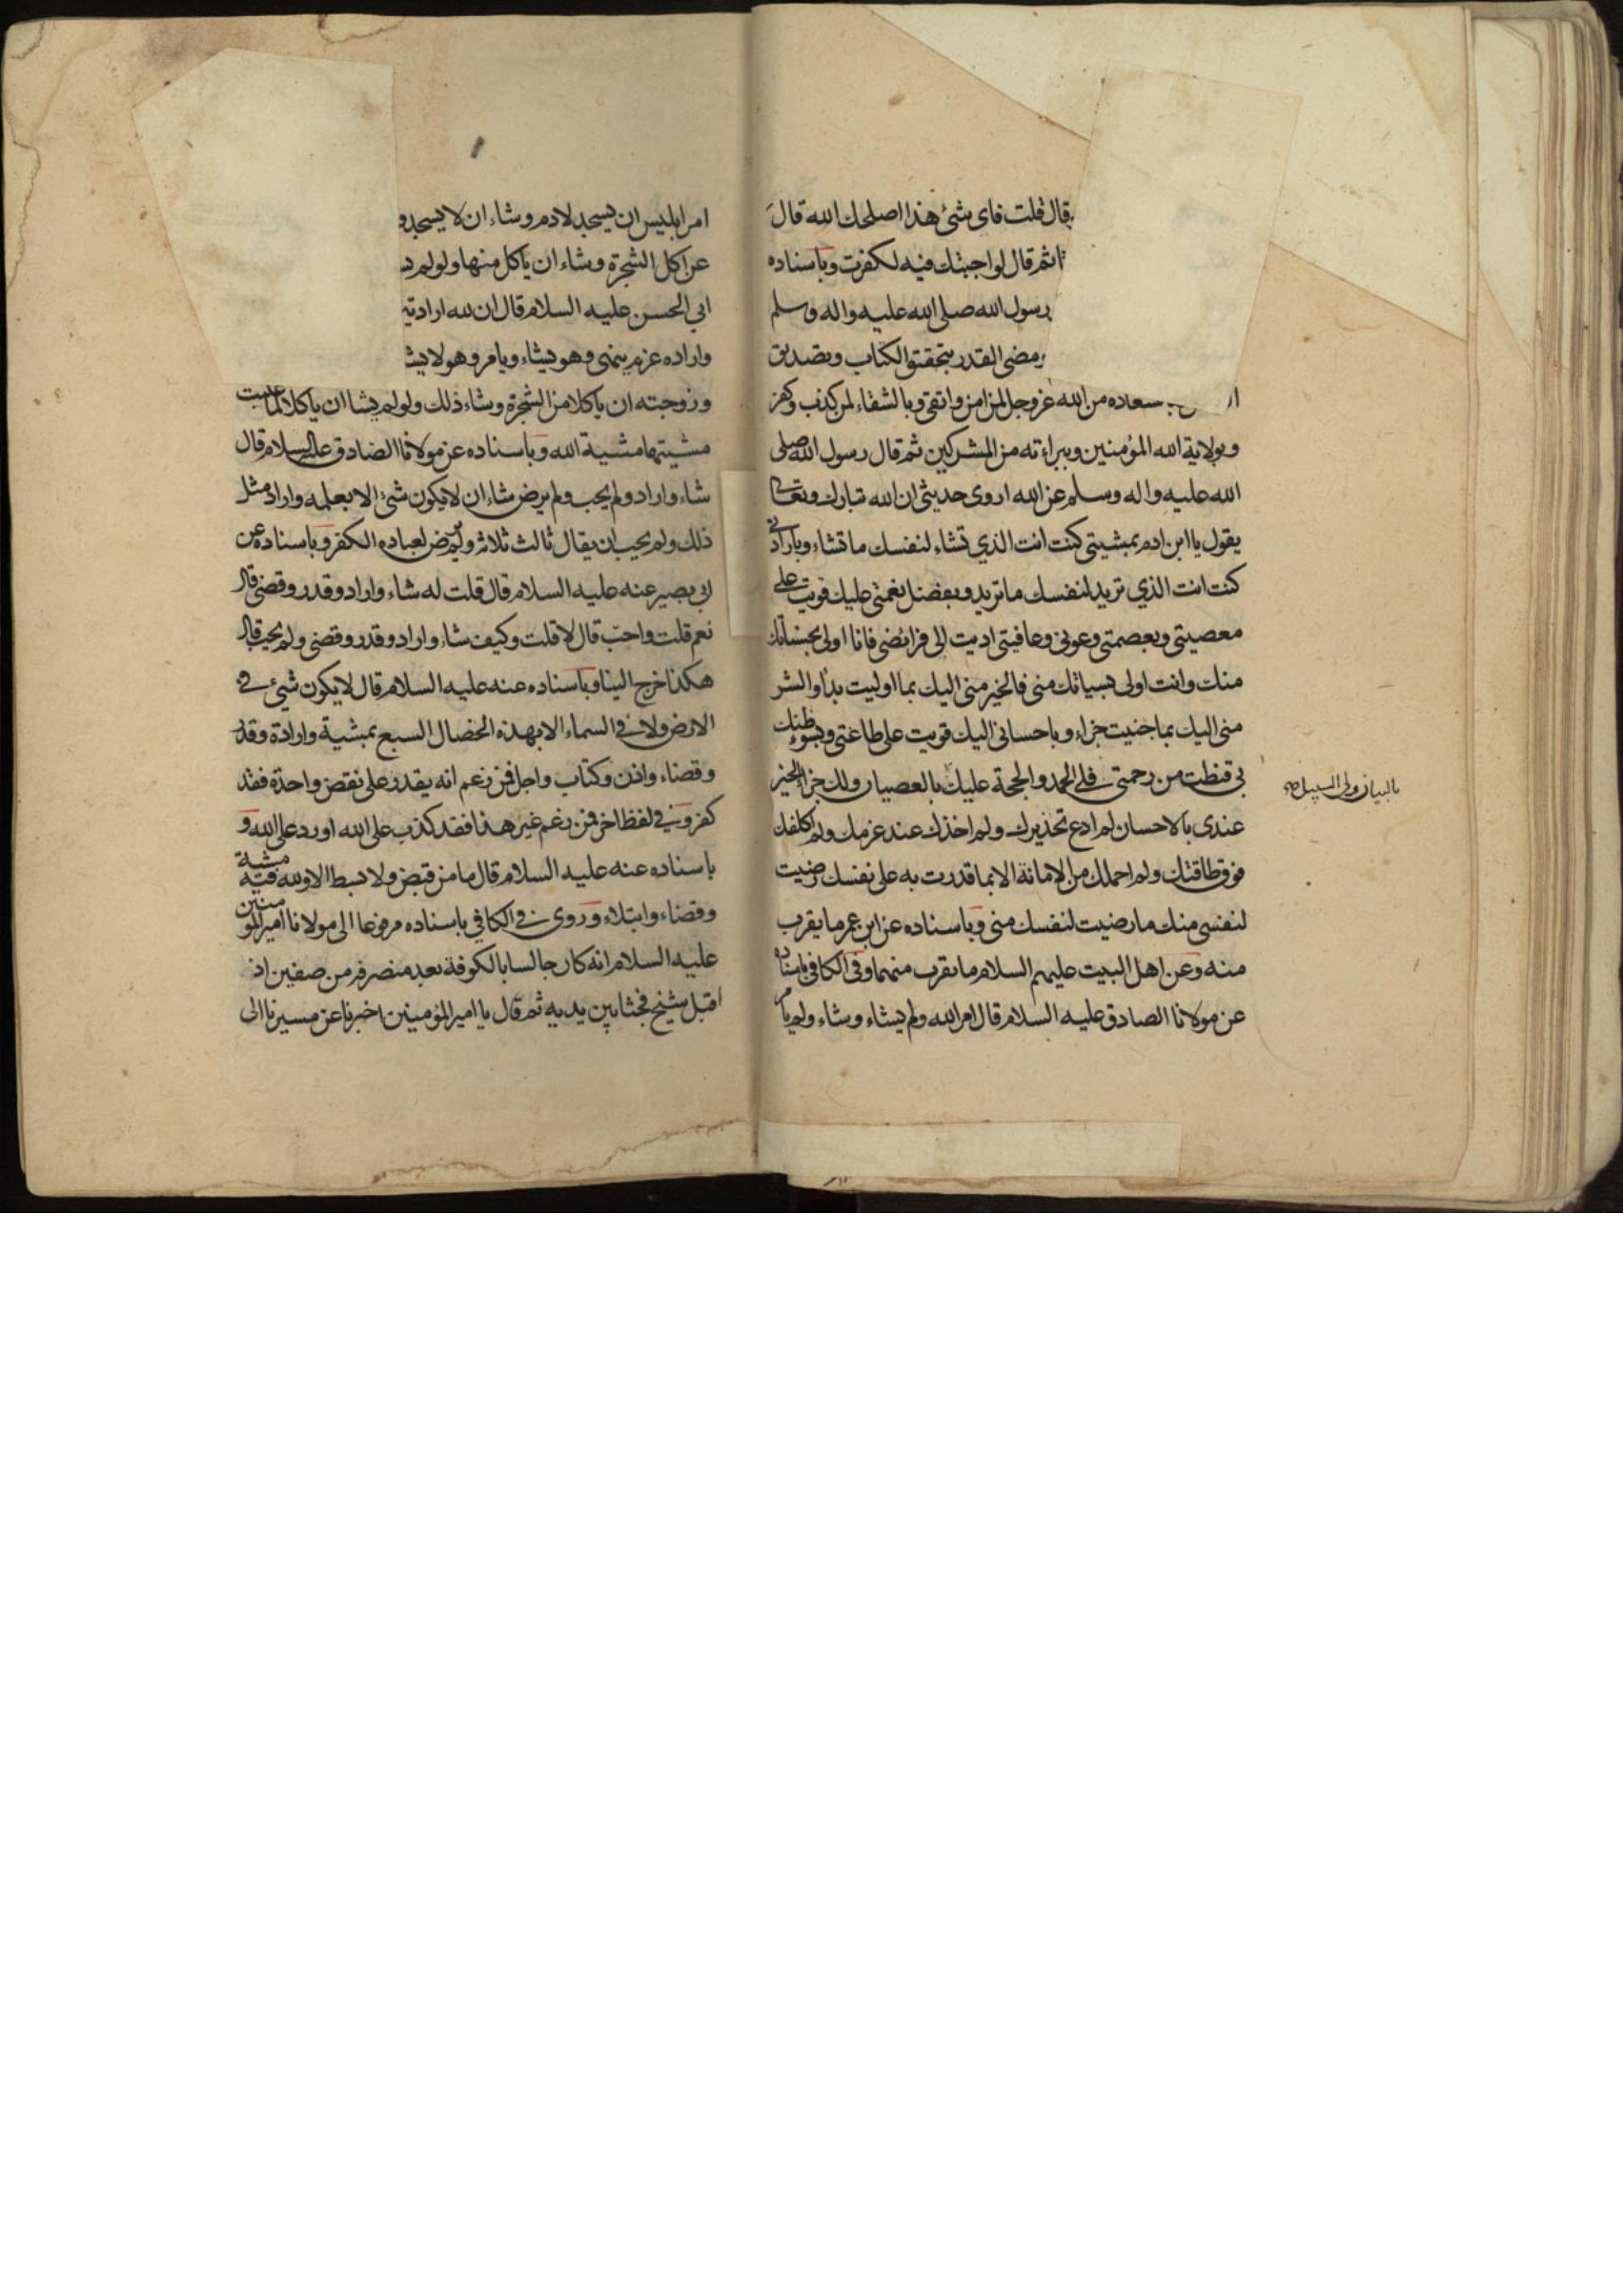 قال قلت فاى شئ هذا اصلحك الله قال
ثم قال لو اجبتك فيه لكفرت وباسناده
رسول الله صلى الله عليه واله وسلم
ومضى القدر بتحقيق الكتاب وتصديق
سعاده من الله عز وجل لمن امن واتقى وبالشقاء لمن كذب وكفر
وبولاية الله المؤمنين وببراءته من المشركين ثم قال رسول الله صلى
الله عليه واله وسلم عن الله اروى حديثى ان الله تبارك وتعالى
يقول يا ابن ادم بمشيتى كنت انت الذي تشاء لنفسك ما تشاء وبارادتى
كنت انت الذي تريد لنفسك ما تريد وبفضل نعمتى عليك قويت على
معصيتى وبعصمتى وعونى وعافيتى اديت الى فرائضى فانا اولى بحسناتك
منك وانت اولى بسياتك منى فالخير منى اليك بما اوليت بدأ والشر
منى اليك بما جنيت جزاء وباحسانى اليك قويت على طاعتى وبسوء ظنك
بى قنطت من رحمتى فلى الحمد والحجة عليك بالعصيان ولك جزاء الخير
بالبيان ولى السبيل صح
عندى بالاحسان لم ادع تحذيرك ولم اخذك عند عزمك ولم اكلفك
فوق طاقتك ولم احملك من الامانة الا بما قدرت به على نفسك رضيت
لنفسى منك ما رضيت لنفسك منى وباسناده عن ابن عمر ما يقرب
منه وعن اهل البيت عليهم السلام ما يقرب منهما وفى الكافى باسناده
عن مولانا الصادق عليه السلام قال امر الله ولم يشاء وشاء ولم يامر
امر ابليس ان يسجد لادم وشاء ان لا يسجد و
عن اكل الشجرة وشاء ان ياكل منها ولو لم
ابي الحسن عليه السلام قال ان لله ارادتين
واراده عزم ينهى وهو يشاء ويامر وهو لا يشا
وزوجته ان ياكلا من الشجرة وشاء ذلك ولو لم يشا ان ياكلا لما غلبت
مشيتهما مشية الله وباسناده عن مولانا الصادق عليه السلام قال
شاء واراد ولم يحب ولم يرض شاء ان لا يكون شئ الا بعلمه واراد مثل
ذلك ولم يحب ان يقال ثالث ثلاثة ولم يرض لعباده الكفر وباسناده عن
ابى بصير عنه عليه السلام قال قلت له شاء واراد وقدر وقضى قال
نعم قلت واحب قال لا قلت وكيف شاء واراد وقدر وقضى ولم يحب قال
هكذا خرج الينا وباسناده عنه عليه السلام قال لا يكون شئ فى
الارض ولا فى السماء الا بهذه الخصال السبع بمشية وارادة وقدر
وقضاء واذن وكتاب واجل فمن زعم انه يقدر على نقض واحدة فقد
كفر وفي لفظ اخر فمن زعم غير هذا فقد كذب على الله او رد على الله و
باسناده عنه عليه السلام قال ما من قبض ولا بسط الا ولله فيه مشية
وقضاء وابتلاء وروى فى الكافي باسناده مرفوعا الى مولانا امير المؤمنين
عليه السلام انه كان جالسا بالكوفة بعد منصرفه من صفين اذ
اقبل شيخ فجثا بين يديه ثم قال يا امير المؤمنين اخبرنا عن مسيرنا الى